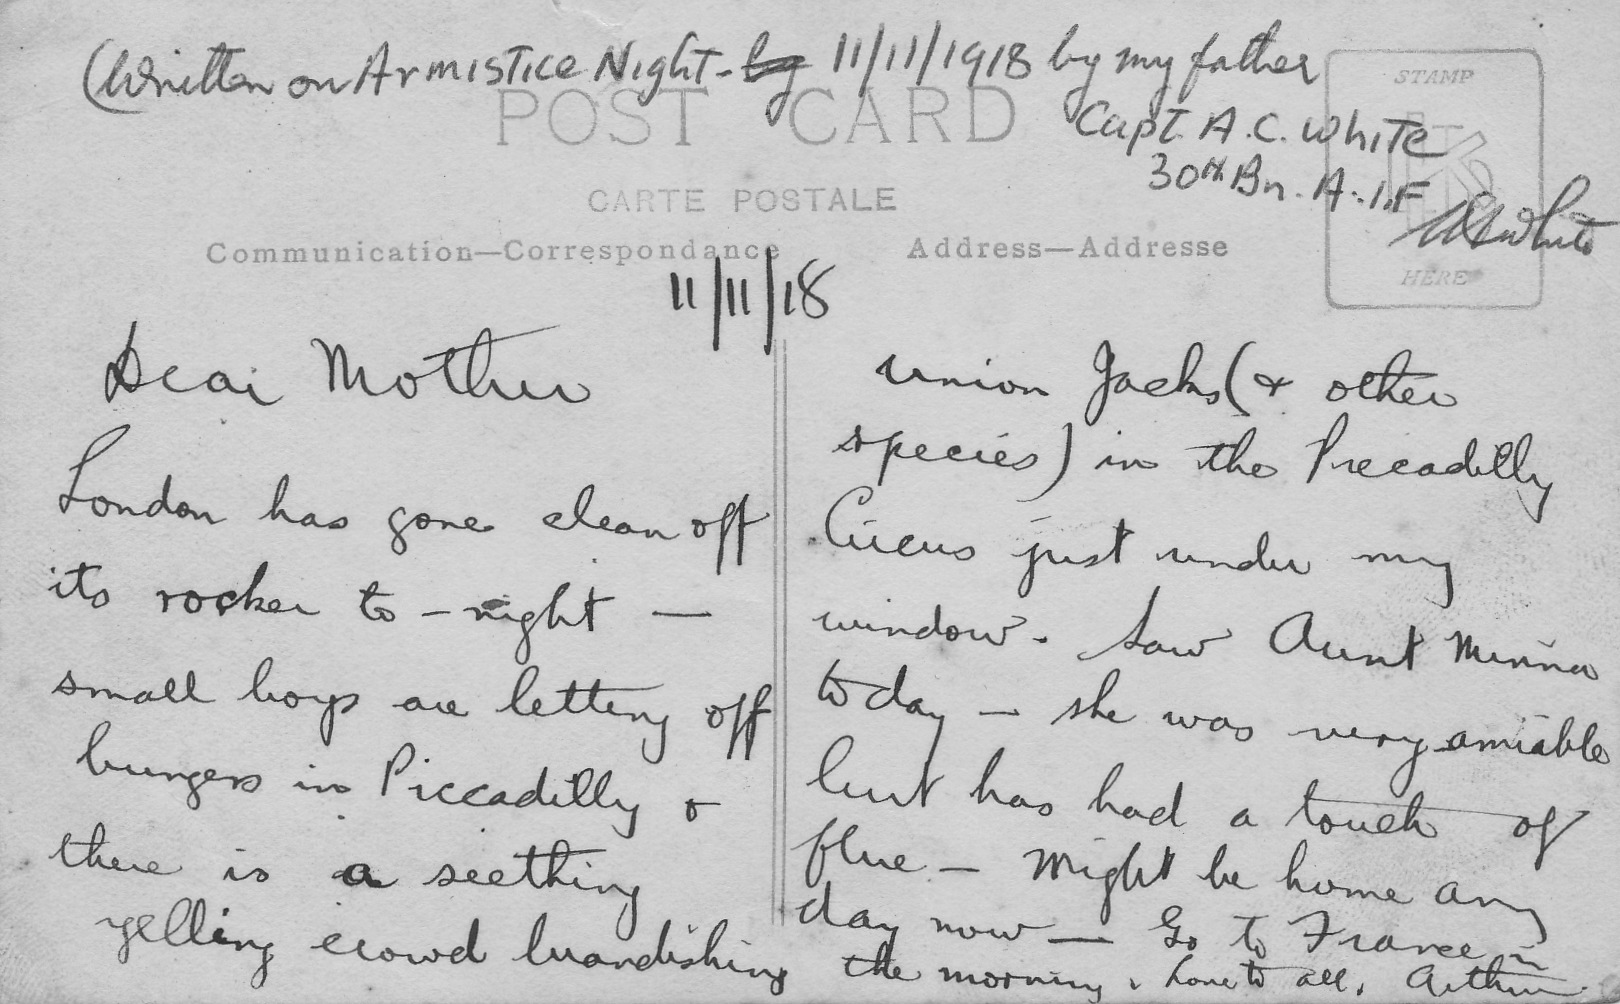 (Written on Armistice Night - by 11/11/1918 by my father
Capt. A.C. White
30th Bn. A.I.F
POST CARD
CARTE POSTALE
Communication—Correspondance
Address—Addresse
STAMP
HERE
11/11/18
Dear Mother
London has gone clean off
its rocker to-night —
small boys are letting off
bungers in Piccadilly &
there is a seething
yelling crowd brandishing
union Jacks (& other
species) in the Piccadilly
Circus just under my
window. Saw Aunt Minna
today — she was very amiable
but has had a touch of
flue — Might be home any
day now — Go to France in
the morning. Love to all. Arthur